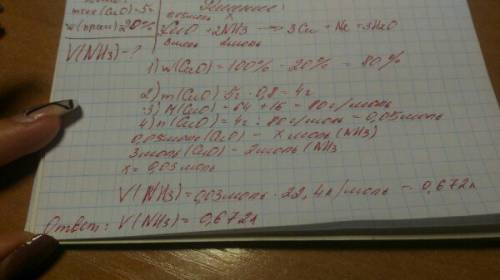 Решение:
mтехн(CuO)=5г
w(прим)=20%
0,05моль x
3CuO + 2NH3 => 3Cu + N2 + 3H2O
3моль 2моль
V(NH3)-?
1) w(CuO) = 100% - 20% = 80%
2) m(CuO) 5г · 0,8 = 4г
3) M(CuO) = 64 + 16 = 80г/моль
4) n(CuO) = 4г : 80г/моль = 0,05моль
0,05моль(CuO) - x моль(NH3)
3моль(CuO) - 2моль(NH3
x = 0,03 моль
V(NH3) = 0,03моль · 22,4л/моль = 0,672л
Ответ: V(NH3) = 0,672л